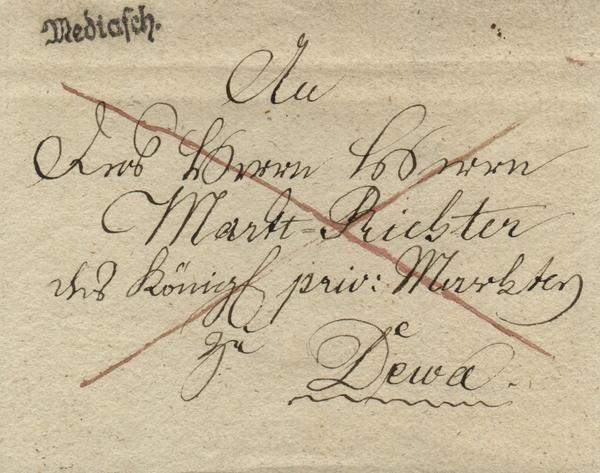 Mediasch.
An
Herrn
Markt-Richter
des Königl priv: Markten
zu Dewa.